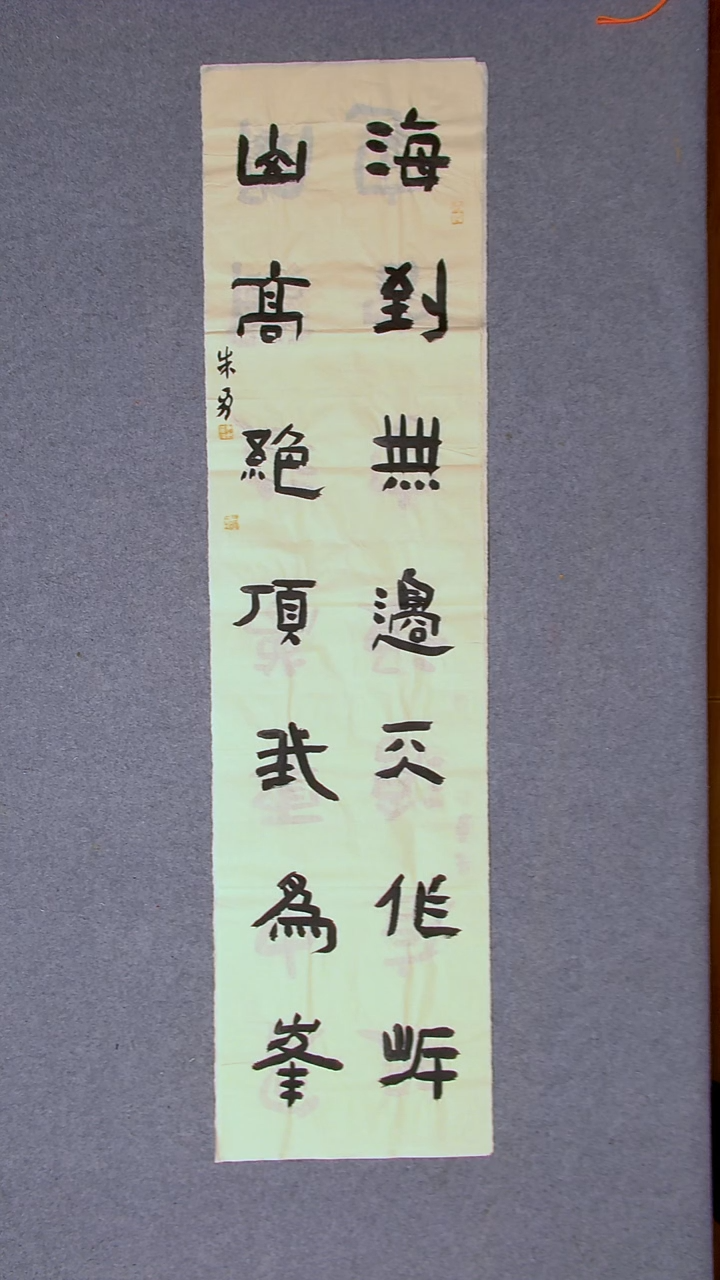 海到無邊天作岸
山高絕頂我為峯
朱勇